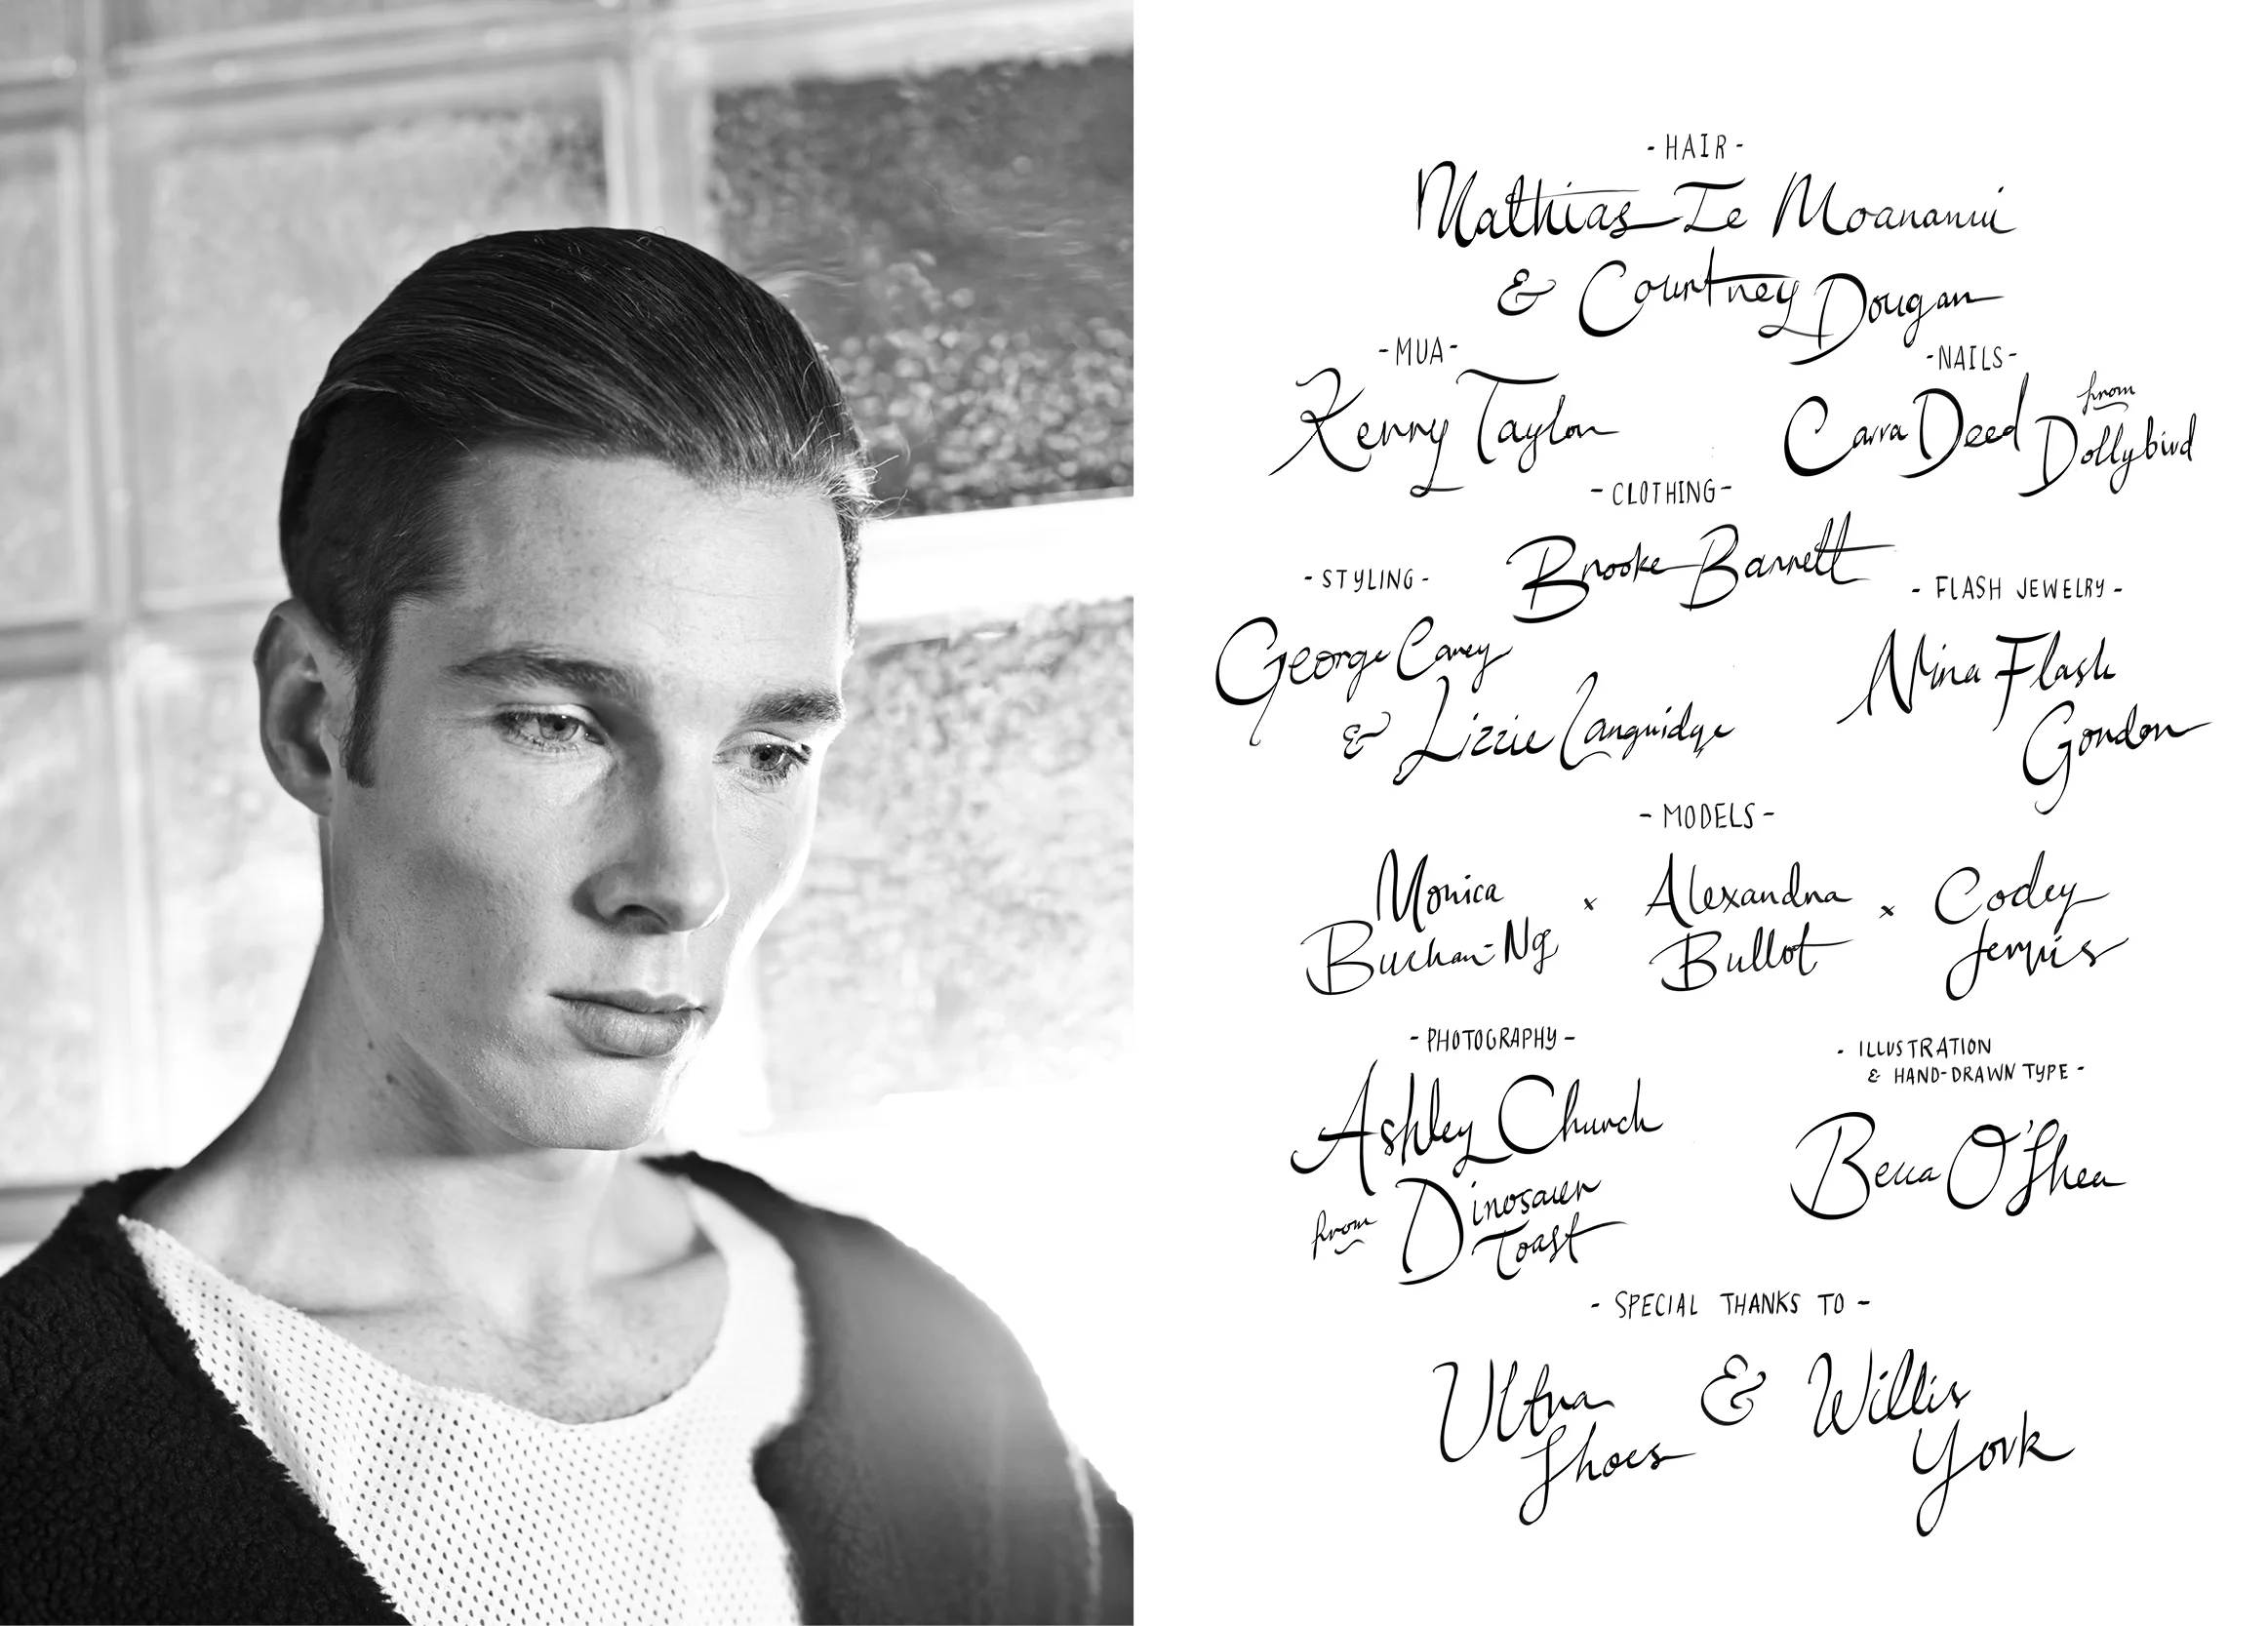 - HAIR -
Mathias Te Moananui
& Courtney Dougan
- MUA -
Kenny Taylor
- NAILS -
Carra Deed from Dollybird
- CLOTHING -
Brooke Barrett
- STYLING -
George Carey
& Lizzie Languidge
- FLASH JEWELRY -
Nina Flash
Gordon
- MODELS -
Monica
Buchan-Ng
x
Alexandra
Bullot
x
Codey
Jervis
- PHOTOGRAPHY -
Ashley Church
from Dinosaur
Toast
- ILLUSTRATION
& HAND-DRAWN TYPE -
Becca O'Shea
- SPECIAL THANKS TO -
Ultra
Shoes
&
Willis
York